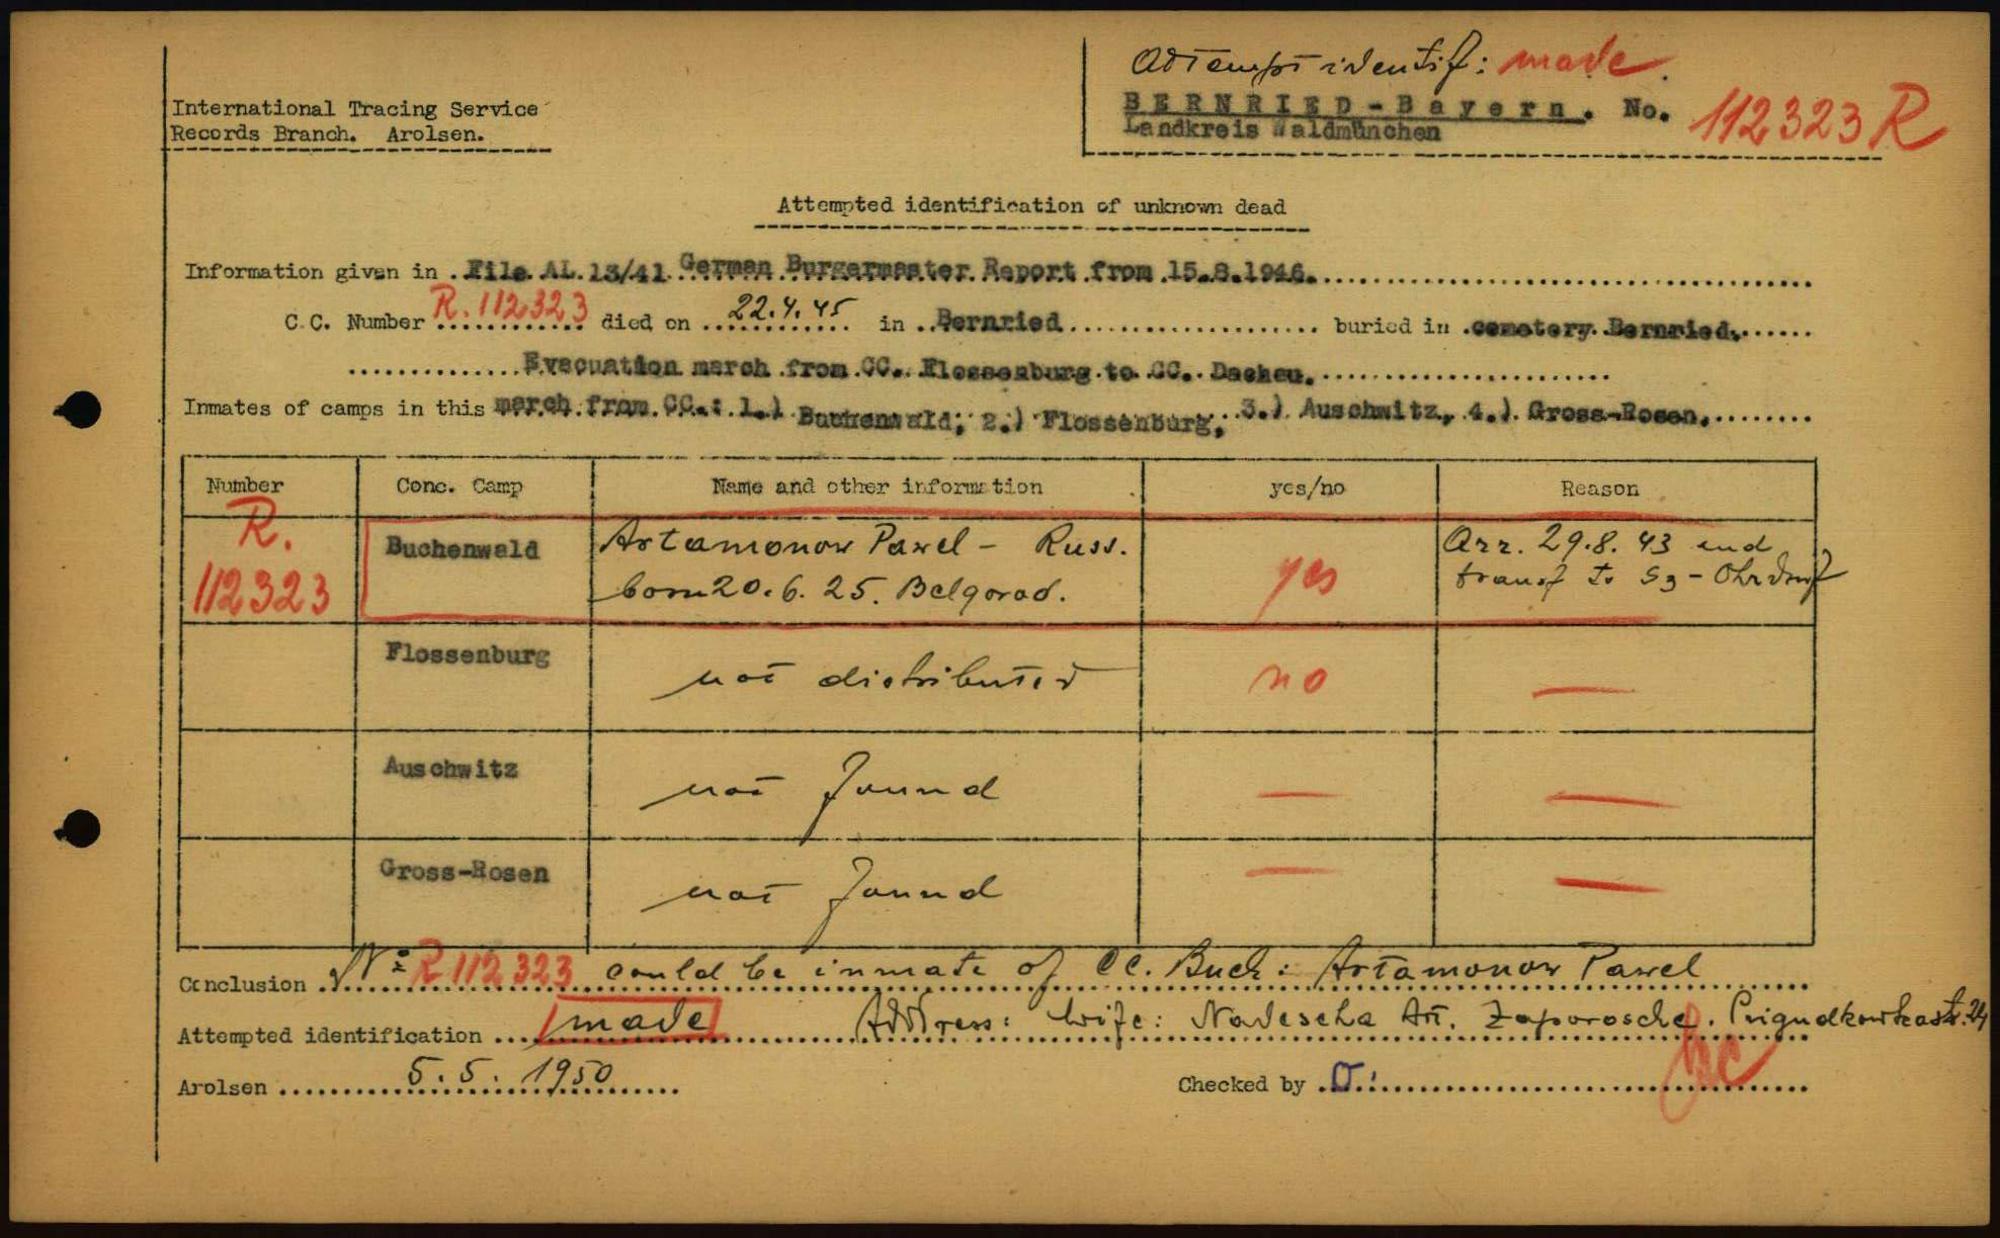 Attempt identif: made.
International Tracing Service
Records Branch. Arolsen.
BERNRIED-Bayern. No. 112323 R
Landkreis Waldmünchen
Attempted identification of unknown dead
Information given in .File AL.13/41 German Burgermaster Report from 15.8.1946.
C.C. Number R.112323 died on 22.4.45 in ..Bernried buried in .cemetery Bernried.
Evacuation march from CC. Flossenburg to CC. Dachau.
Inmates of camps in this march from CC.: 1.) Buchenwald, 2.) Flossenburg, 3.) Auschwitz, 4.) Gross-Rosen.
Number Conc. Camp Name and other information yes/no Reason
R. 112323 Buchenwald Artamonow Pawel - Russ. yes Arr. 29.8.43 and
born 20.6.25. Belgorod. transf to S3 - Ohrdruf
Flossenburg not distributed no —
Auschwitz not found — —
Gross-Rosen not found — —
Conclusion No R 112323 could be inmate of CC. Buch: Artamonow Pawel
Attempted identification made Address: wife: Nadescha Art. Zaporosche.
Arolsen 5.5.1950 Checked by